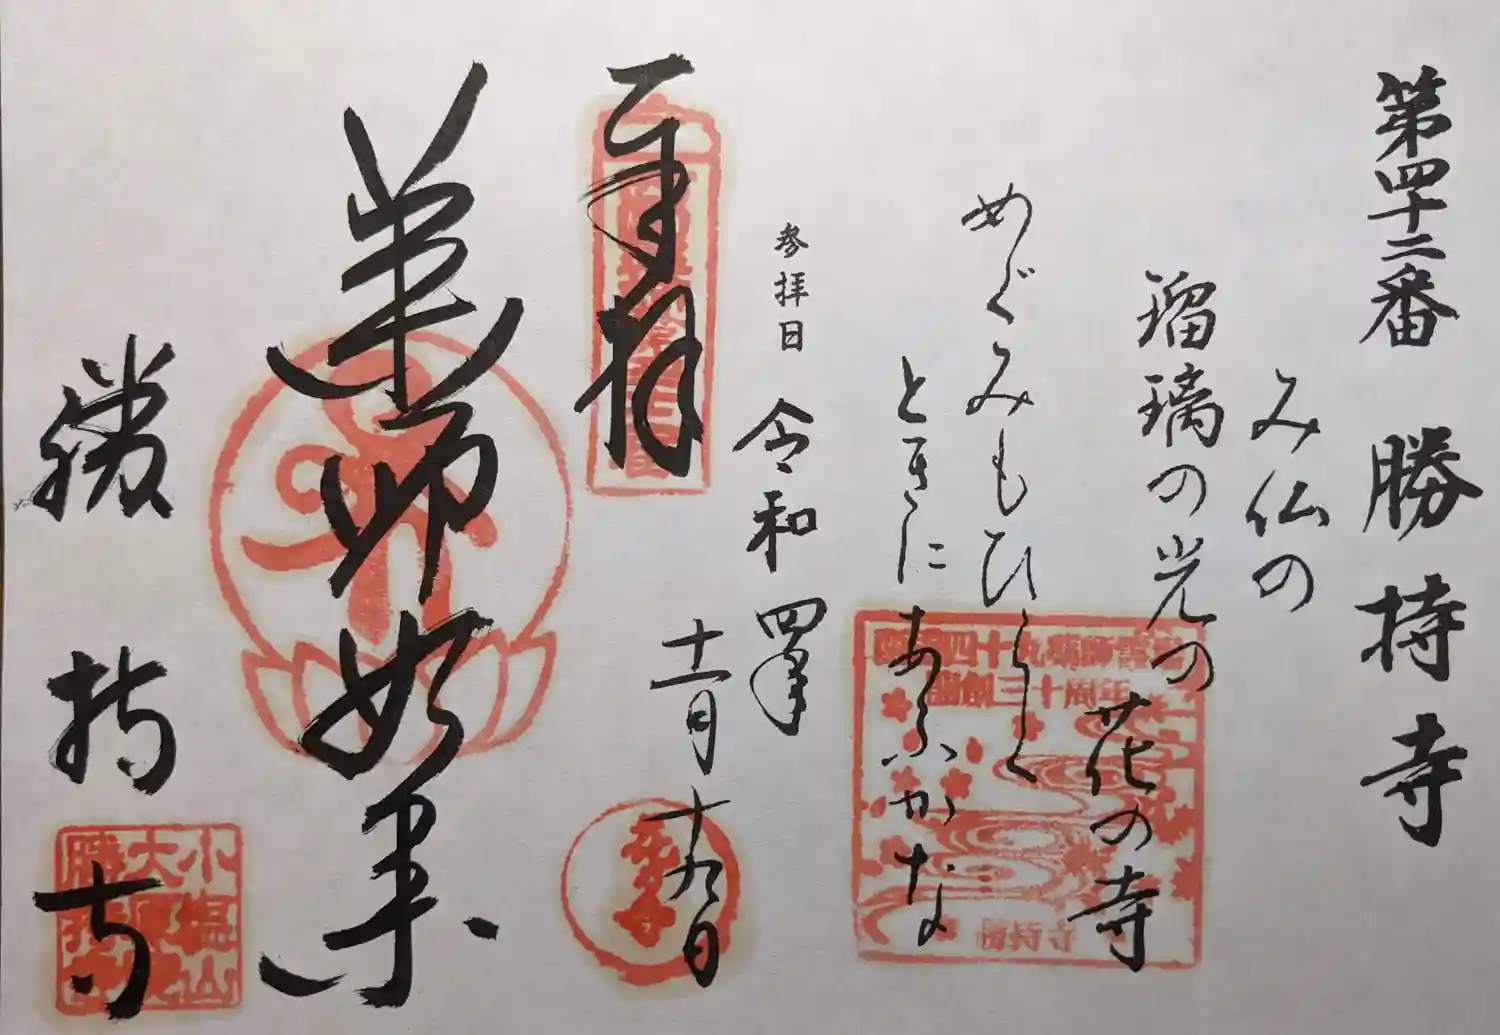 第四十二番 勝持寺
み仏の
瑠璃の光の 花の寺
めぐみもひらく
ときにあふかな
参拝日 令和四年
十一月十九日
奉拝
薬師如来
勝持寺
四十九薬師霊場
開創三十周年
勝持寺
小塩山
大原院
勝持寺